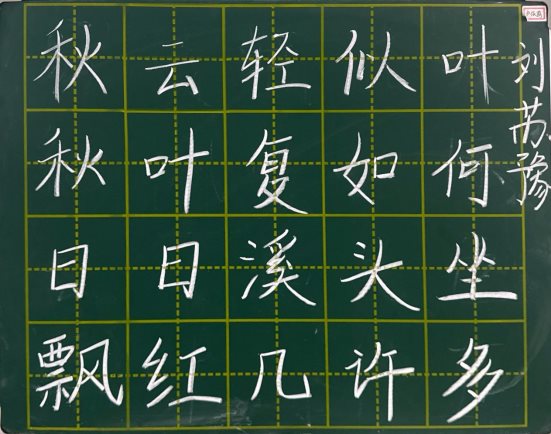 秋云轻似叶
秋叶复如何
日日溪头坐
飘红几许多
刘苏豫